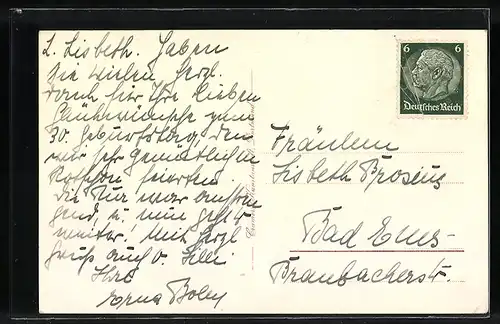 L. Lisbeth. Haben
Sie vielen herzl.
Dank für Ihre lieben
Glückwünsche zum
30. Geburtstag, den
wir sehr gemütlich in
feierten.
Die Kur war anstren
gend, u. nun geht's
weiter! Mit herzl.
Gruß auch v. Lilli
Ihre
Erna
6 6
Deutsches Reich
Fräulein
Lisbeth Brosius
Bad Ems
Braubacherstr.